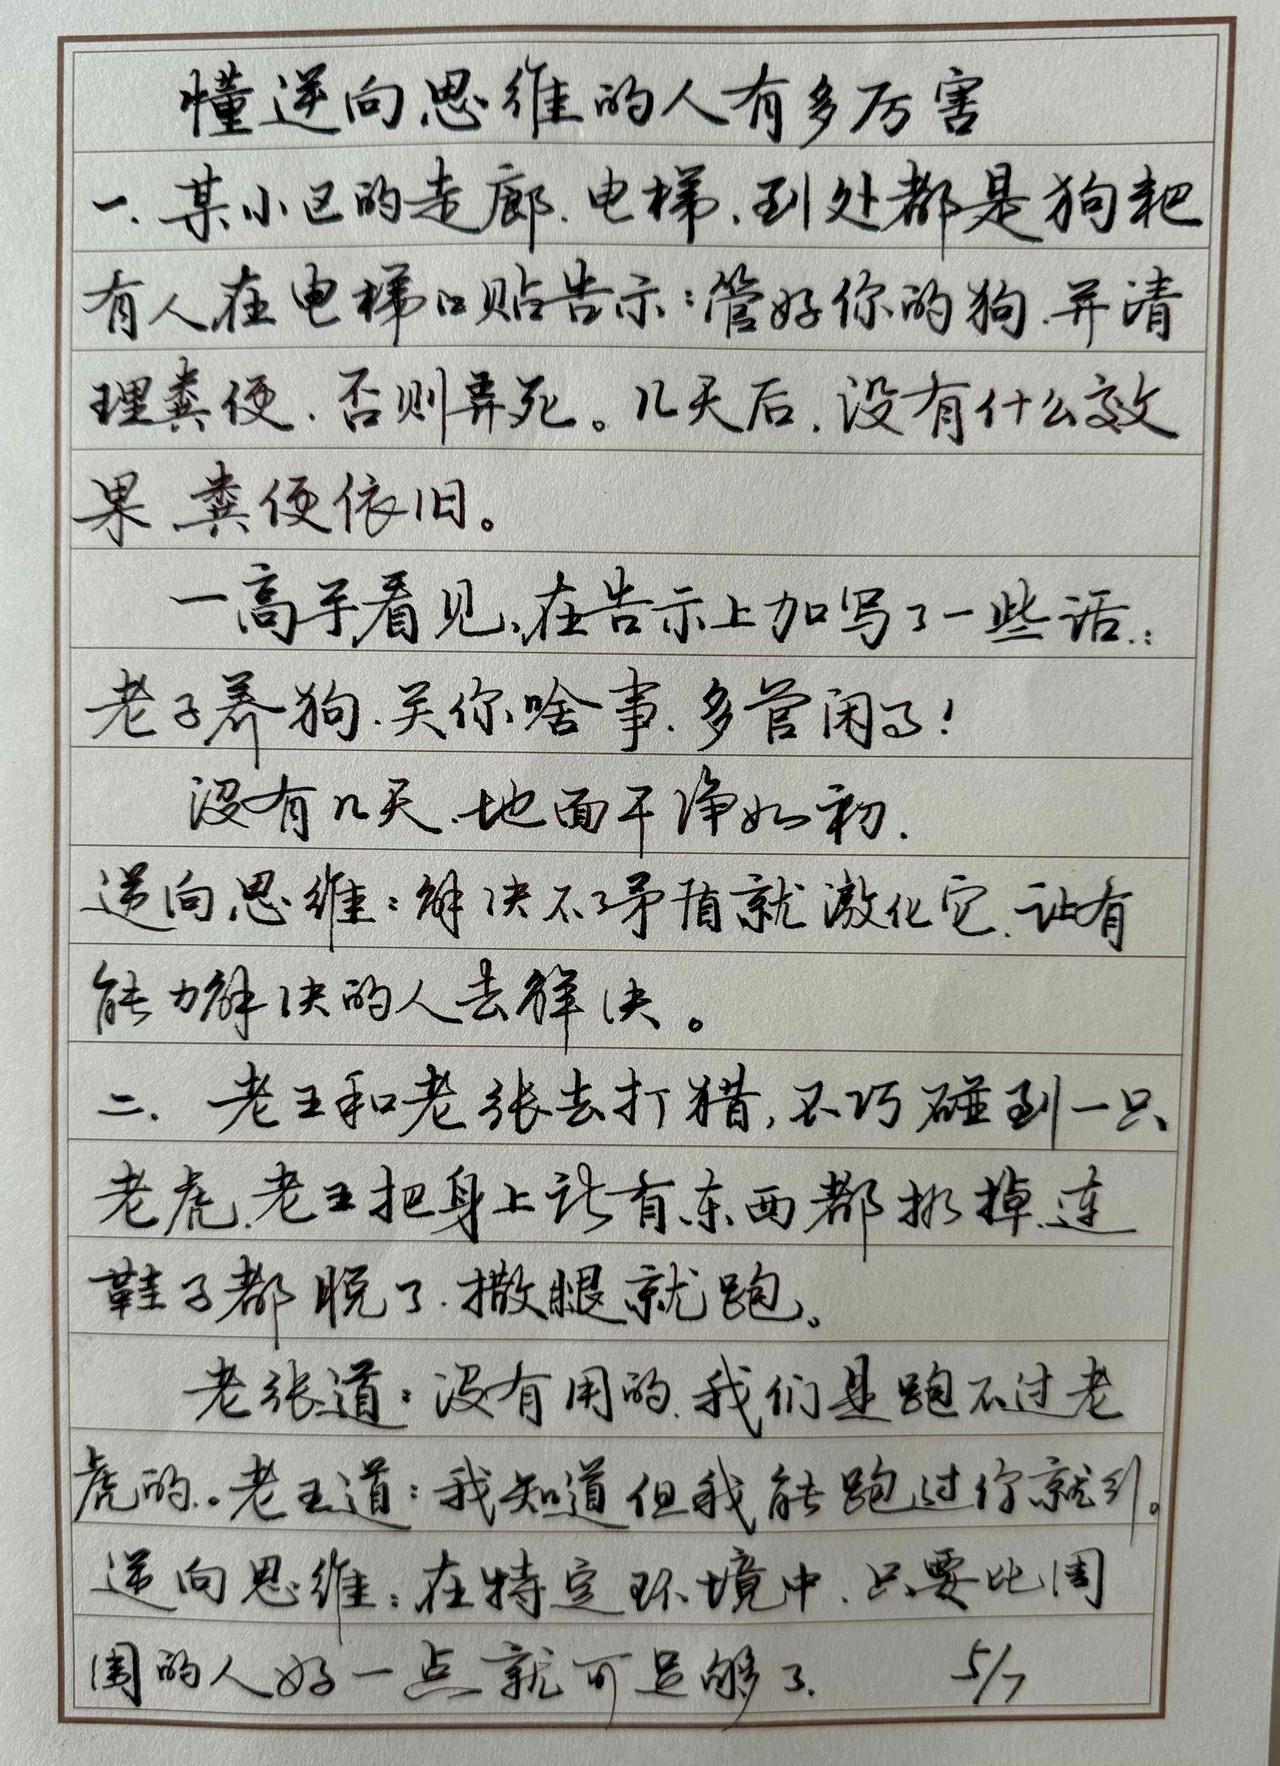 懂逆向思维的人有多厉害
一.某小区的走廊.电梯.到处都是狗粑
有人在电梯口贴告示:管好你的狗.并清
理粪便.否则弄死。几天后.没有什么效
果.粪便依旧。
一高手看见.在告示上加写了一些话.:
老子养狗.关你啥事.多管闲了!
没有几天.地面干净如初.
逆向思维:解决不了矛盾就激化它.让有
能力解决的人去解决。
二.老王和老张去打猎,不巧碰到一只
老虎.老王把身上所有东西都扔掉.连
鞋子都脱了.撒腿就跑。
老张道:没有用的.我们是跑不过老
虎的.。老王道:我知道但我能跑过你就行。
逆向思维:在特定环境中.只要比周
围的人好一点就可足够了.
5/7